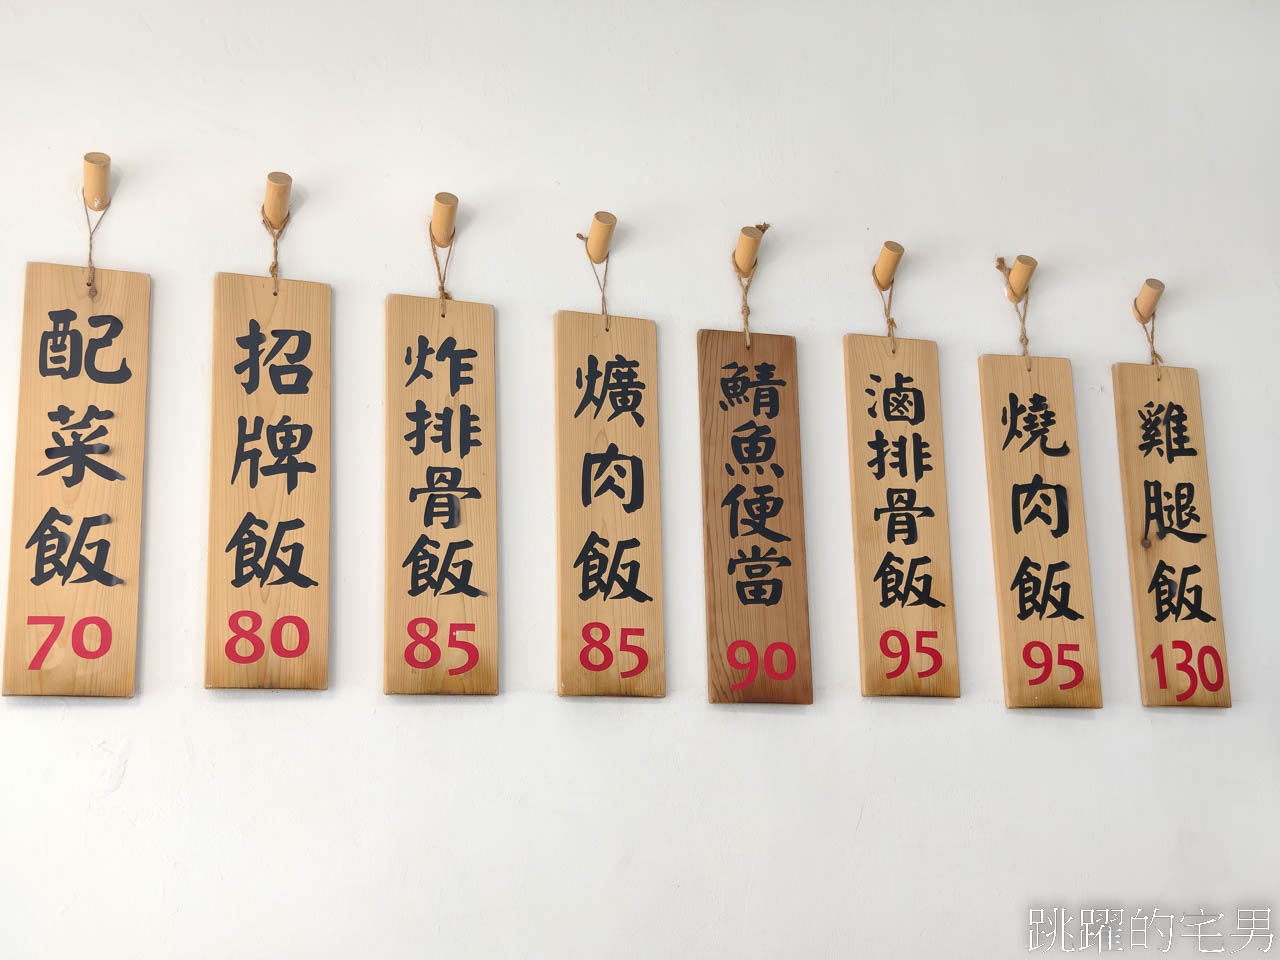 配菜飯
70
招牌飯
80
炸排骨飯
85
爌肉飯
85
鯖魚便當
90
滷排骨飯
95
燒肉飯
95
雞腿飯
130
跳躍的宅男